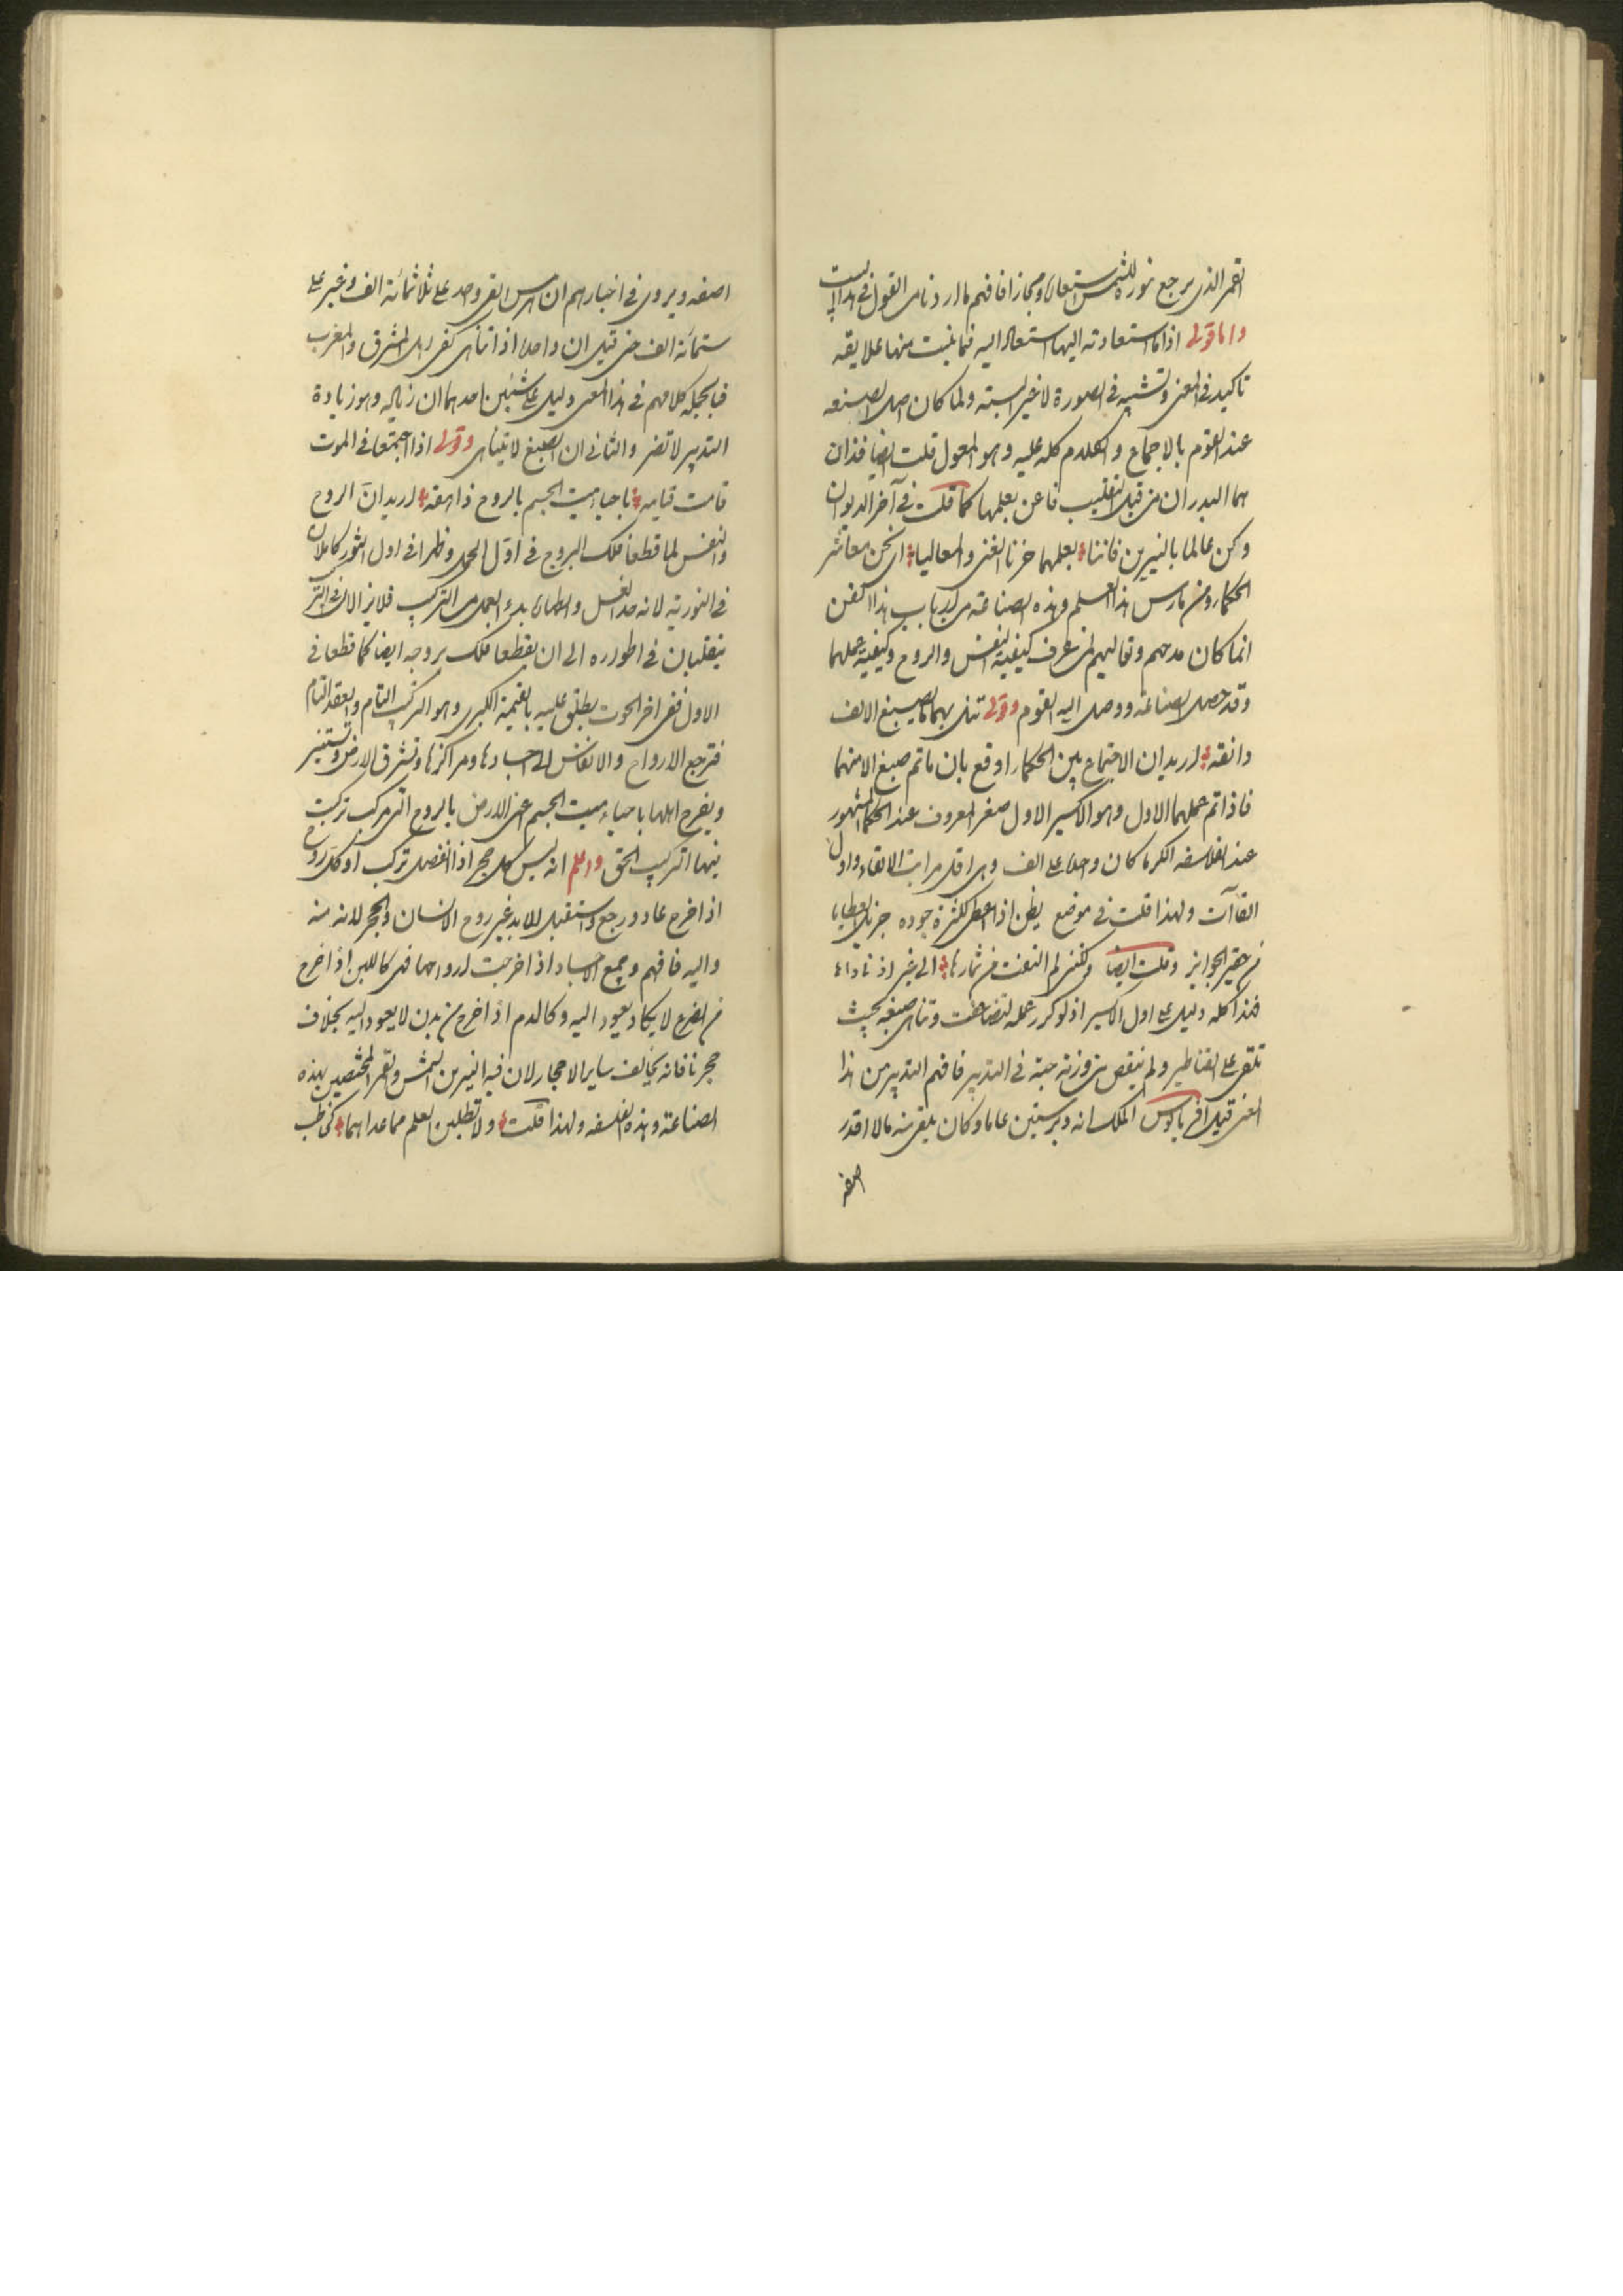 القمر الذي يرجع نوره للشمس استعارة ومجازا فافهم ما اردناه من القول في هذا البيت
واما قولي اذا ما استعادته اليها استعاد اليه فما غبت منها علايقه
تاكيد في المعنى وتشبيه في الصورة لا غير البتة ولما كان اصل الصنعه
عند القوم بالاجماع والكلام كله عليه وهو المعول قلت ايضا فذان
هما البدران من قبل التغليب فاعن بعلمها كما قلت في آخر الديوان
وكن عالما بالنيرين فاننا بعلمهما حزنا الغنى والمعاليا اي نحن معاشر
الحكماء ومن مارس هذا العلم وهذه الصناعة من ارباب هذا الفن
انما كان مدحهم وتعاليهم لمن عرف كيفية النفس والروح وكيفية عملهما
وقد حصل الصناعة ووصل اليه القوم وقولي تنل بهما ما يصبغ الالف
دانقه اريد ان الاجتماع بين الحكماء اوقع بان ما تم صبغ الا منهما
فاذا تم عملهما الاول وهو الاكسير الاول صغر المعروف عند الحكماء المشهور
عند الفلاسفه الكرما كان واحدا على الف وهي اقل مراتب الالقاء واول
القاآت ولهذا قلت في موضع يظن اذا اعطى لكثرة جوده جزيل العطايا
من حقير الجوايز وقلت ايضا ولكنني لم التفت من ثمارها الى غير اذ ناداه
فهذا كله دليل على اول الاكسير اذ لو كرر عمله لتضاعفت وتناهى صبغه بحيث
تلقى على القناطير ولم ينقص من وزنه حبة في التدبير فافهم التدبير من هذا
المعنى قيل في الملك انه دبر ستين عاما وكان يلقي منه ما لا اقدر
اصفه
اصفه ويروى في اخبارهم ان هرمس القى واحد على ثلاثمائة الف وغيره على
ستمائة الف حتى قيل ان واحدا اذا تناهى كفى اهل المشرق والمغرب
فبالجملة كلامهم في هذا المعنى دليل على شيئين احدهما ان زياده وهو زيادة
التدبير لا تضر والثاني ان الصبغ لا يتناهى وقولي اذا اجتمعا في الموت
قامت قيامة باحياء ميت الجسم بالروح زاهقه اريد ان الروح
والنفس لما قطعا فلك البروج في اول الحمل وظهرا في اول الثور كاملان
في النورية لانه حد الغسل والطهارة بدء العمل من التركيب فلا يزالان في التركيب
يتقلبان في اطواره الى ان يقطعا فلك بروجه ايضا كما قطعا في
الاول ففي اخر الحوت يطلق عليه بالقيمة الكبرى وهو التركيب التام والعقد التام
فترجع الارواح والانفاس الى اجسادها ومراكزها وتشرق الارض وتستنير
ويفرح اهلها باحياء ميت الجسم اعني الارض بالروح التي هي مركب تركبت
فيها التركيب الحق واعلم انه ليس كل حجر اذا انفصل تركب او كل روح
اذا خرج عاد ورجع واستقبل للابد غير روح الانسان والحجر لانه منه
واليه فافهم وجميع الاجساد اذا خرجت ارواحها فهي كاللبن اذا خرج
من الضرع لا يكاد يعود اليه وكالدم اذا خرج من بدن لا يعود اليه بخلاف
حجرنا فانه يخالف ساير الاحجار لان فيه النيرين الشمس والقمر المختصين بهذه
الصناعة وهذه الفلسفه ولهذا قلت ولا تطلبن العلم مما عداهما كحاطب